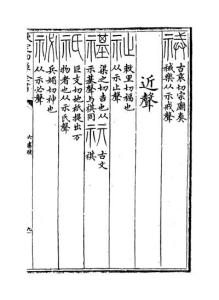 祴 古哀切宗廟奏
祴樂从示戒聲
近聲
祉 敕里切福也
从示止聲
禥 渠之切吉也从
示基聲與祺同
古文
祺
祇 巨支切地祇提出万
物者也从示氏聲
祕 兵媚切神也
从示必聲